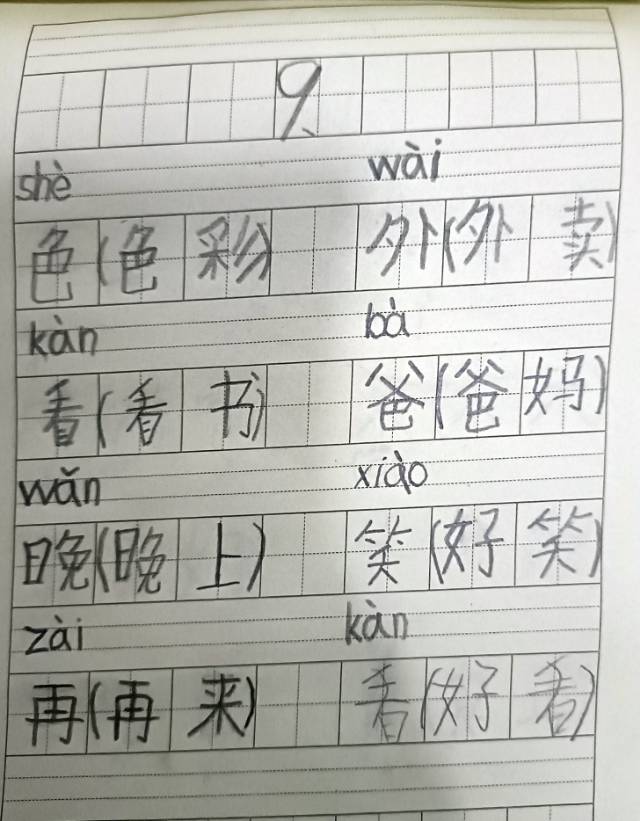 9.
shè wài
色(色彩) 外(外卖)
kàn bà
看(看书) 爸(爸妈)
wǎn xiào
晚(晚上) 笑(好笑)
zài kàn
再(再来) 看(好看)